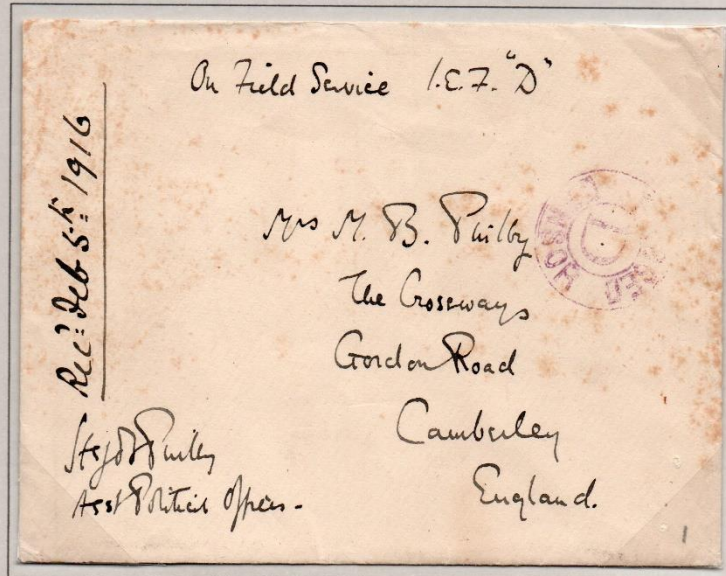 On Field Service I.E.F. "D"
Rec? Feb 5.th 1916
Mrs M. B. Philby
The Crossways
Gordon Road
Camberley
England.
HStJB Philby
Asst Political Officer -
D
1